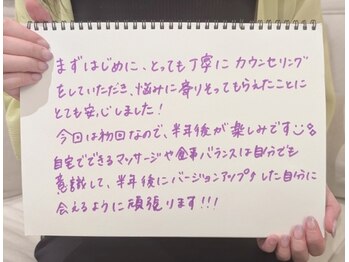 まずはじめに、とっても丁寧に カウンセリング
をしていただき、悩みに寄りそってもらえたことに
とても安心しました！
今回は初回なので、半年後が楽しみです
自宅でできるマッサージや食事バランスは自分でも
意識して、半年後にバージョンアップした自分に
会えるように頑張ります!!!